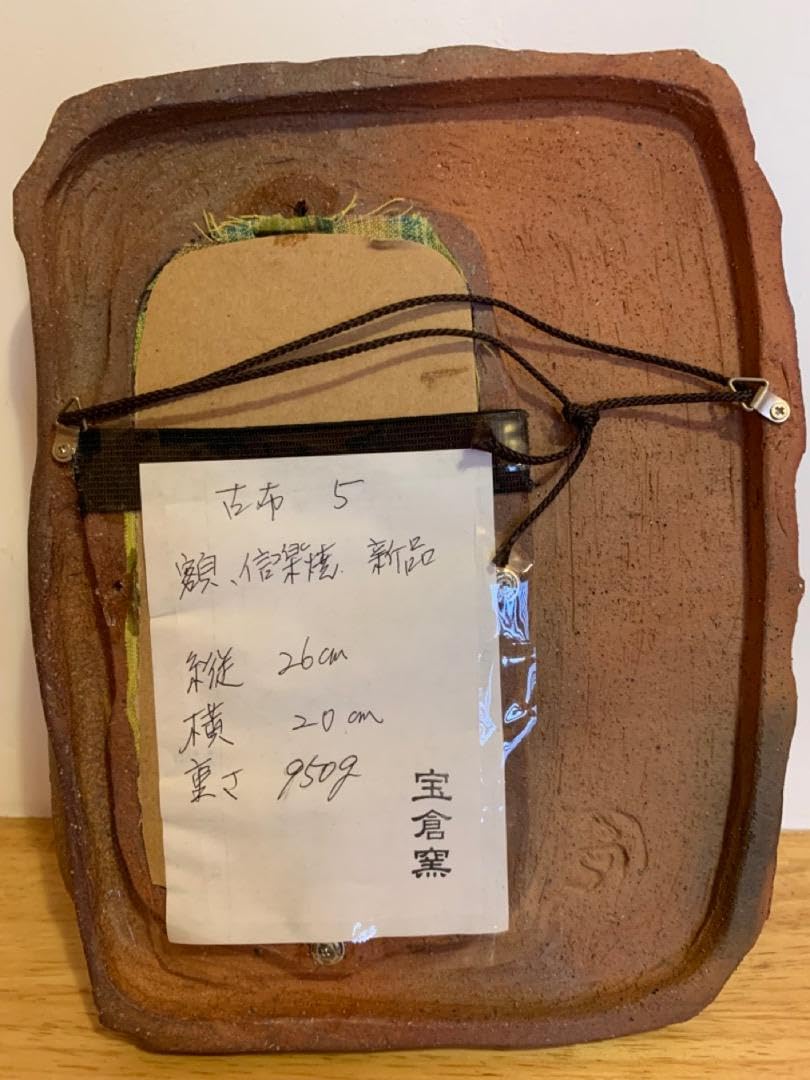 古布 5
額、信楽焼 新品
縦 26cm
横 20cm
重さ 950g
宝倉窯